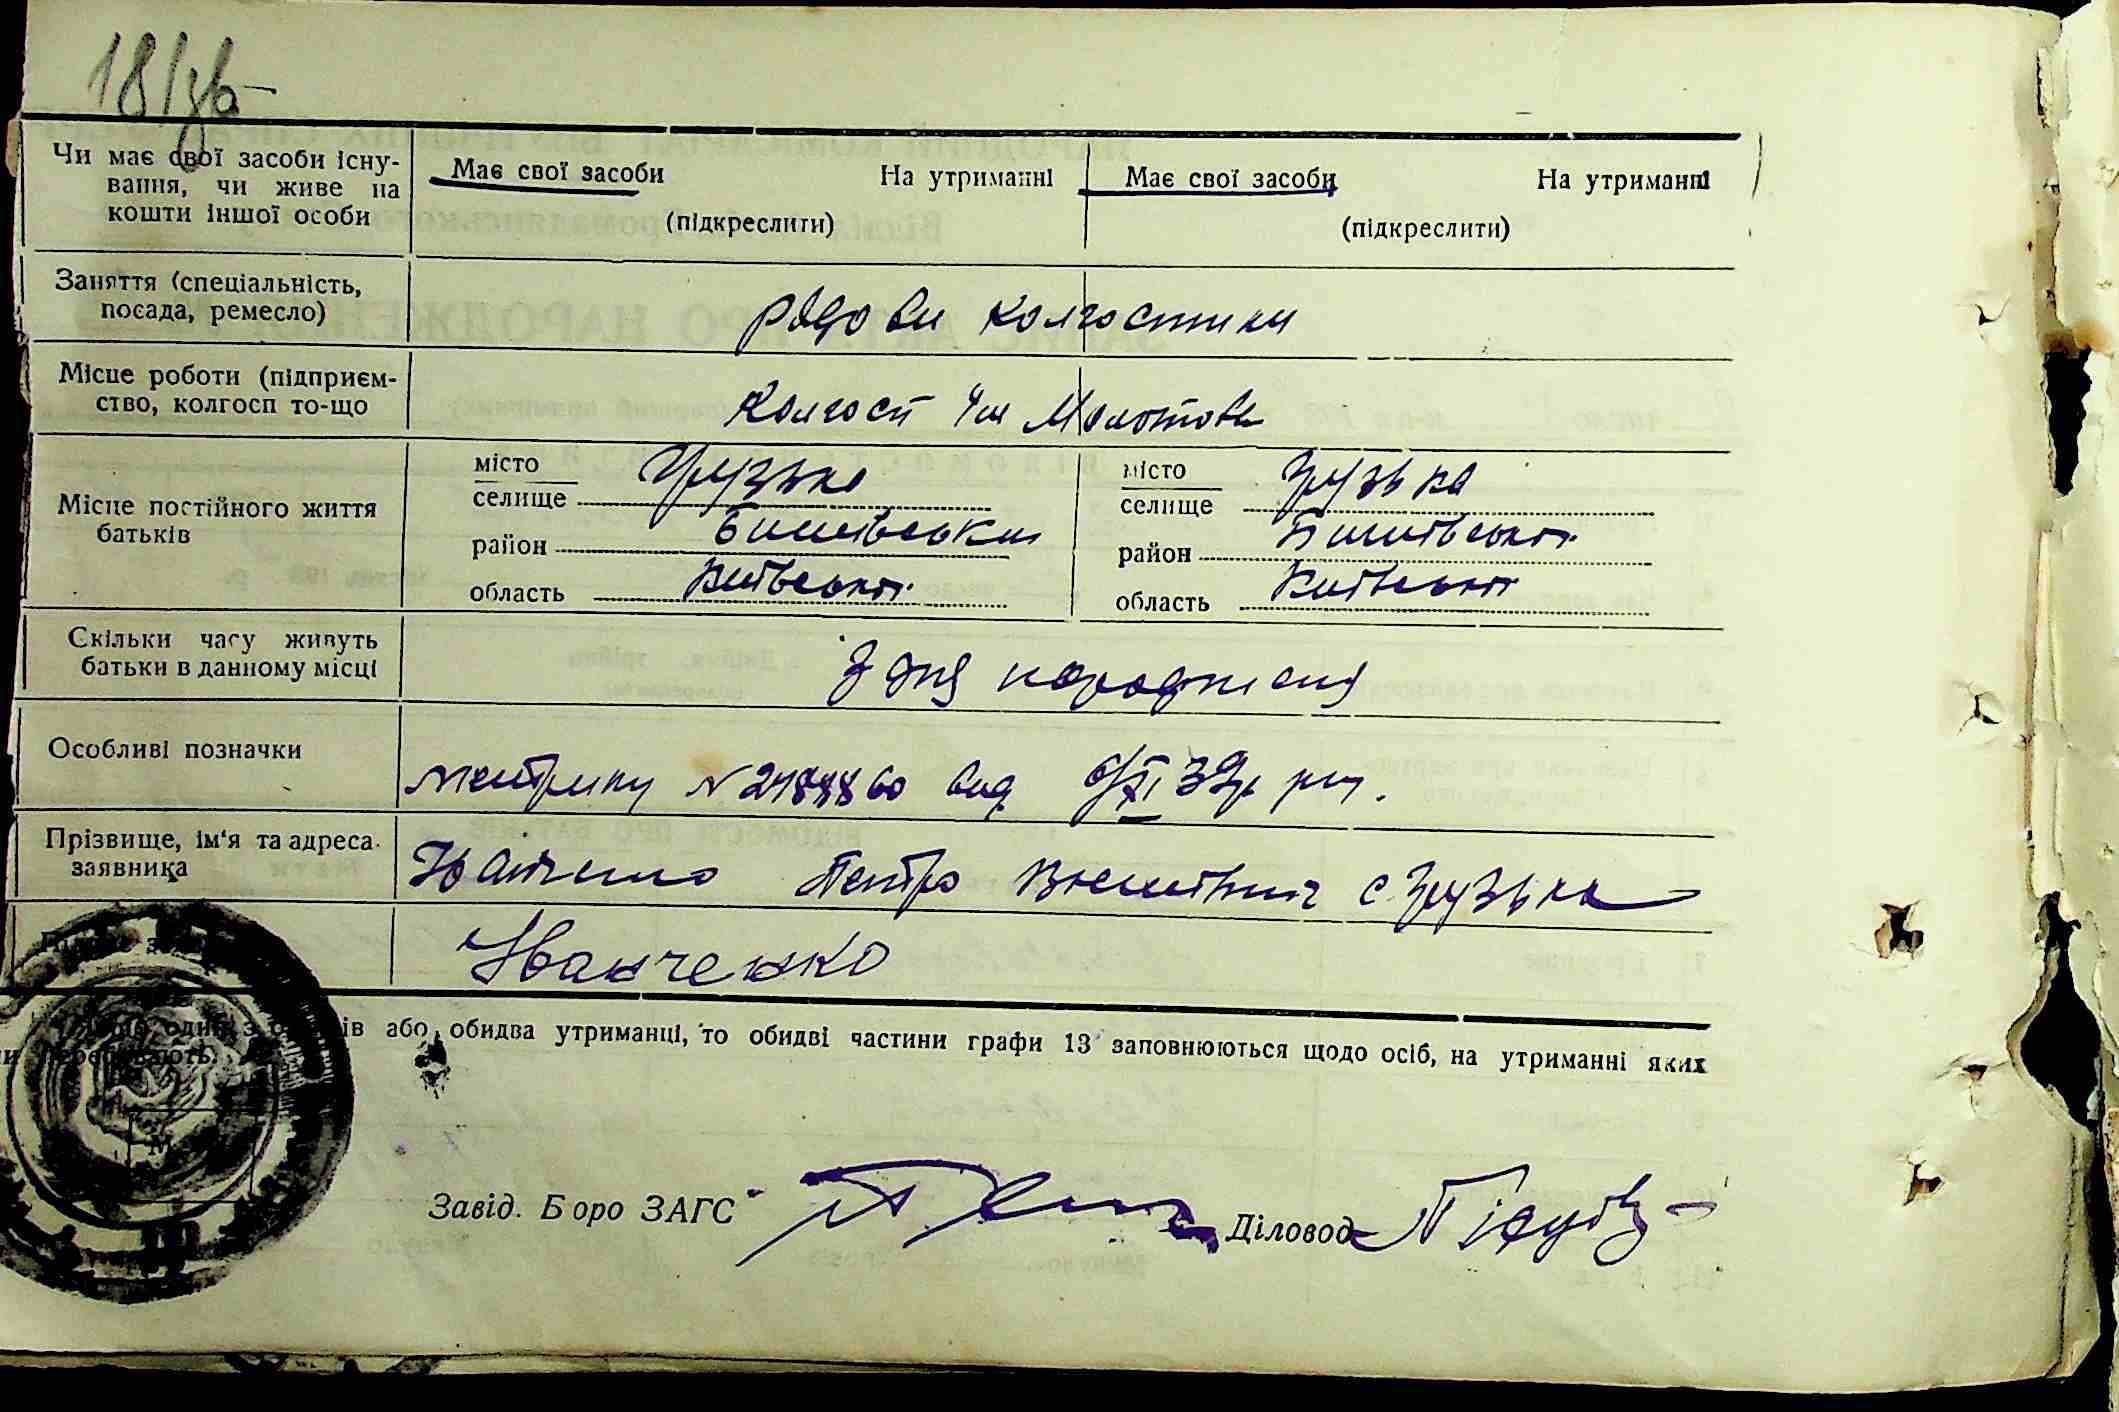 Чи має свої засоби існу-
вання, чи живе на
кошти іншої особи
Має свої засоби На утриманні
(підкреслити)
Має свої засоби На утриманні
(підкреслити)
Заняття (спеціальність,
посада, ремесло)
рядови колгоспники
Місце роботи (підприєм-
ство, колгосп то-що
Колгосп Ім Молотова
Місце постійного життя
батьків
місто
селище Грузьке
район Бишівський
область Київської
місто
селище Грузька
район Бишівської
область Київської
Скільки часу живуть
батьки в данному місці
З дня народження
Особливі позначки
метрику № вид 39
Прізвище, ім'я та адреса
заявника
Іванченко Петро с. Грузька
Іванченко
ів або обидва утриманці, то обидві частини графи 13 заповнюються щодо осіб, на утриманні яких
перебувають.
М
Завід. Бюро ЗАГС Діловод